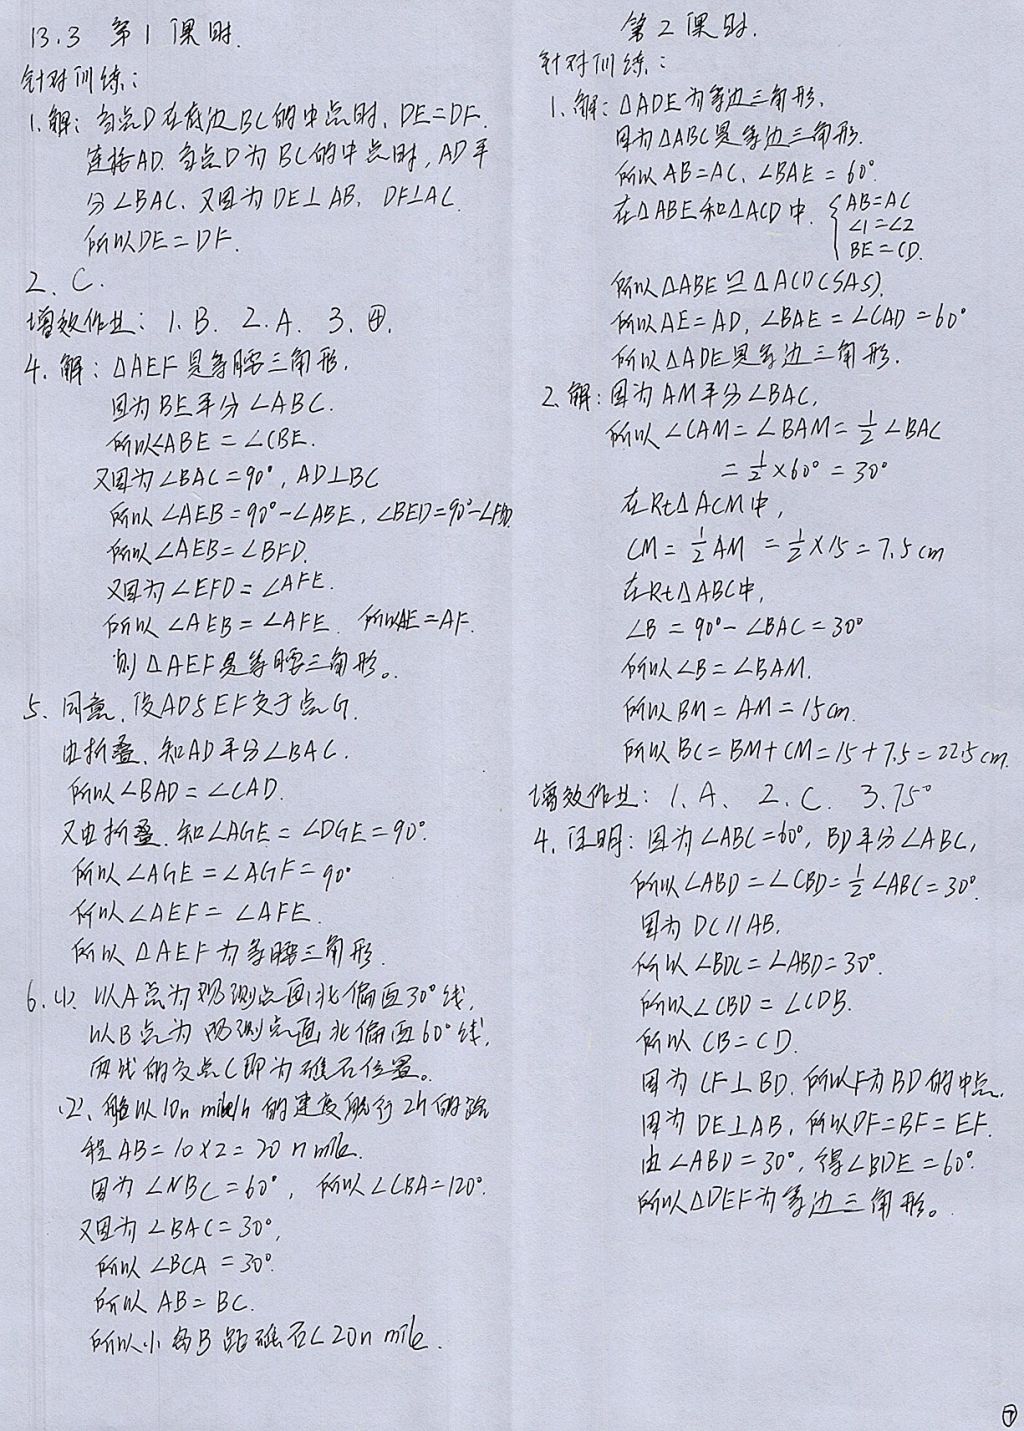 13.3 第1课时.
针对训练:
1.解: 当点D在底边BC的中点时, DE=DF.
连接AD. 当点D为BC的中点时, AD平
分∠BAC. 又因为DE⊥AB, DF⊥AC.
所以DE=DF.
2. C.
增效作业: 1.B. 2.A. 3. ④.
4. 解: △AEF是等腰三角形.
因为BE平分∠ABC.
所以∠ABE=∠CBE.
又因为∠BAC=90°, AD⊥BC
所以∠AEB=90°-∠ABE, ∠BED=90°-∠
所以∠AEB=∠BFD.
又因为∠EFD=∠AFE.
所以∠AEB=∠AFE. 所以AE=AF.
则△AEF是等腰三角形。
5. 同意. 设AD与EF交于点G.
由折叠, 知AD平分∠BAC.
所以∠BAD=∠CAD.
又由折叠, 知∠AGE=∠DGE=90°.
所以∠AGE=∠AGF=90°
所以∠AEF=∠AFE.
所以△AEF为等腰三角形.
6. (1). 以A点为观测点画北偏西30°线,
以B点为观测点画北偏西60°线,
两线的交点C即为礁石位置。
(2). 船以10n mile/h的速度航行2h的路
程AB=10×2=20 n mile.
因为∠NBC=60°, 所以∠CBA=120°.
又因为∠BAC=30°,
所以∠BCA=30°.
所以AB=BC.
所以小岛B距礁石C 20n mile.
第2课时.
针对训练:
1.解: △ADE为等边三角形.
因为△ABC是等边三角形.
所以AB=AC, ∠BAE=60°.
在△ABE和△ACD中. { AB=AC
∠1=∠2
BE=CD.
所以△ABE≌△ACD(SAS).
所以AE=AD, ∠BAE=∠CAD=60°
所以△ADE是等边三角形.
2.解: 因为AM平分∠BAC,
所以∠CAM=∠BAM=1/2∠BAC
=1/2×60°=30°
在Rt△ACM中,
CM=1/2AM=1/2×15=7.5cm
在Rt△ABC中,
∠B=90°-∠BAC=30°
所以∠B=∠BAM.
所以BM=AM=15cm.
所以BC=BM+CM=15+7.5=22.5cm.
增效作业: 1.A. 2.C. 3.75°
4. 证明: 因为∠ABC=60°, BD平分∠ABC,
所以∠ABD=∠CBD=1/2∠ABC=30°.
因为DC//AB.
所以∠BDC=∠ABD=30°.
所以∠CBD=∠CDB.
所以CB=CD.
因为CF⊥BD. 所以F为BD的中点.
因为DE⊥AB, 所以DF=BF=EF.
由∠ABD=30°, 得∠BDE=60°.
所以△DEF为等边三角形。
⑦